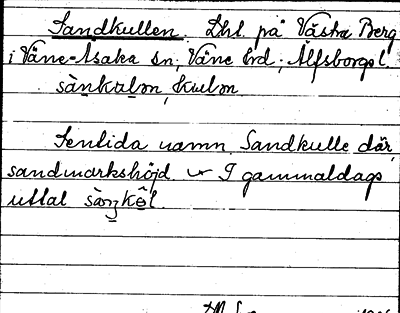 Sandkullen. Lhl. på Västra Berg
i Väne-Åsaka sn, Väne hd, Älfsborgs l.
sànkulən, kulən
Sentida namn Sandkulle där,
sandmarkshöjd. I gammaldags
uttal